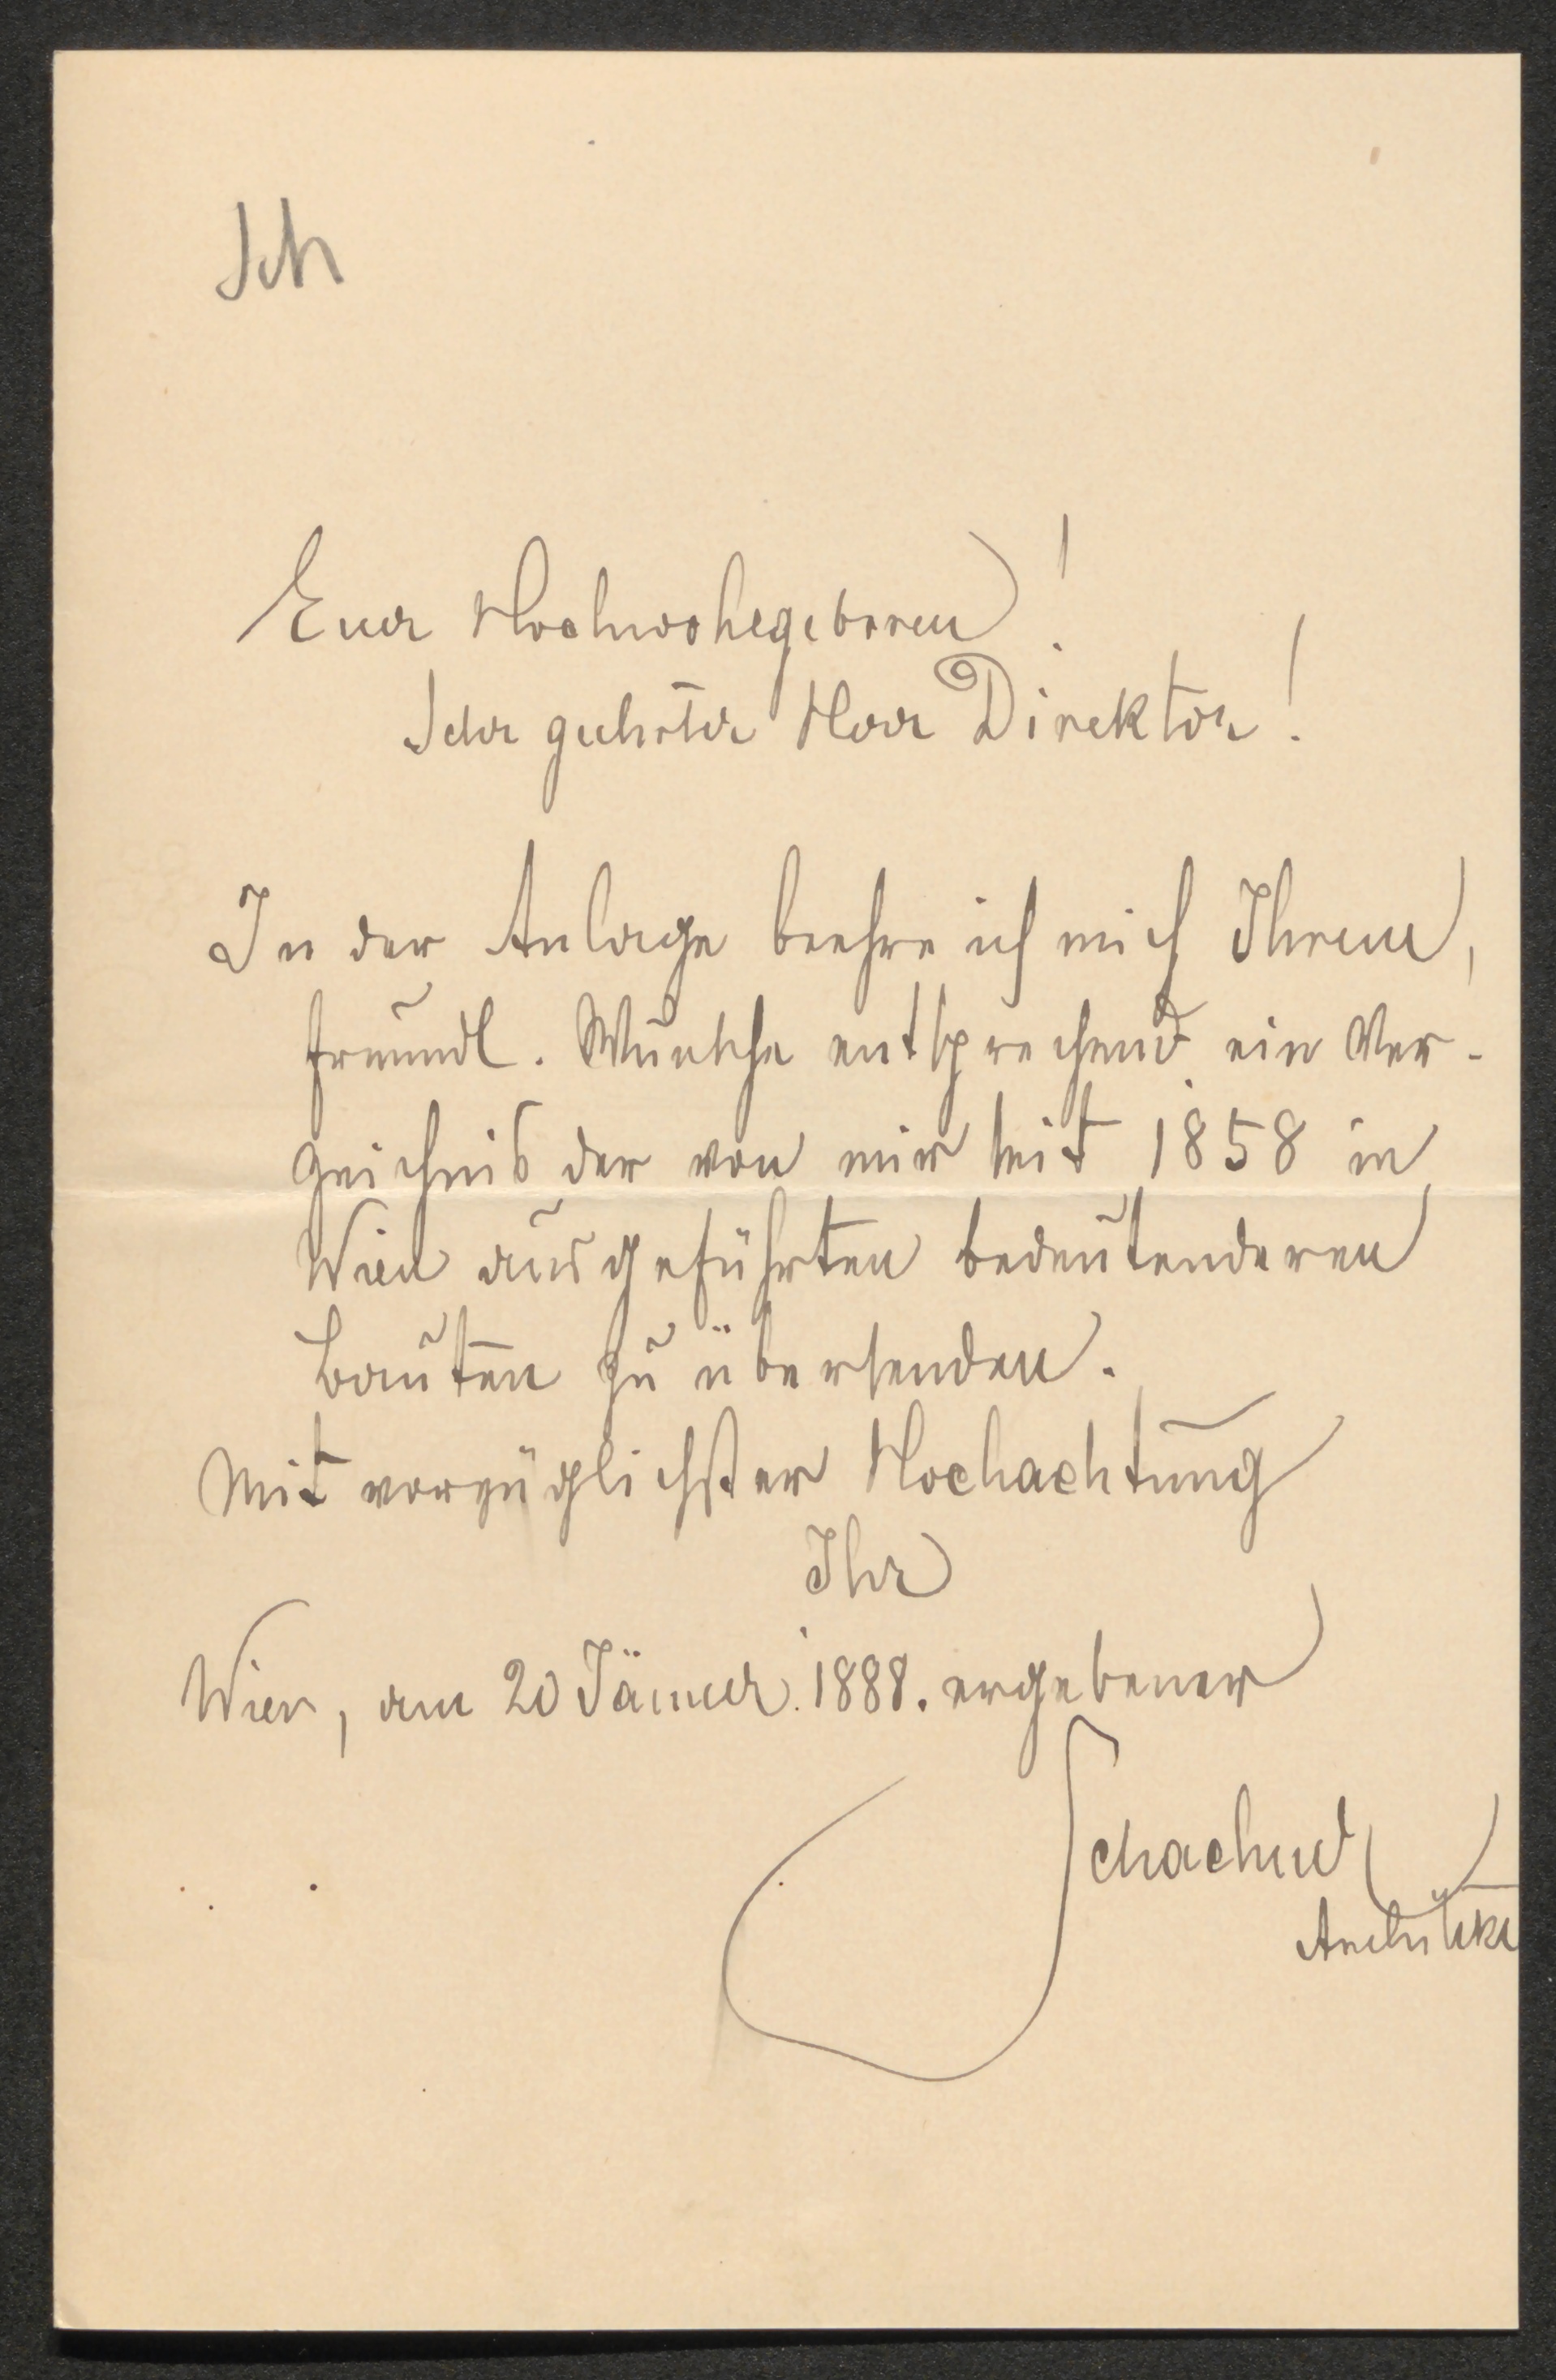 Sch
Euer Hochwohlgeboren!
Sehr geehrter Herr Direktor!
In der Anlage beehre ich mich Ihrem,
freundl. Wunsche entsprechend ein Ver-
zeichnis der von mir seit 1858 in
Wien ausgeführten bedeutenderen
Bauten zu übersenden.
Mit vorzüglichster Hochachtung
Ihr
Wien, am 20 Jänner 1888. ergebener
Schachner
Architekt